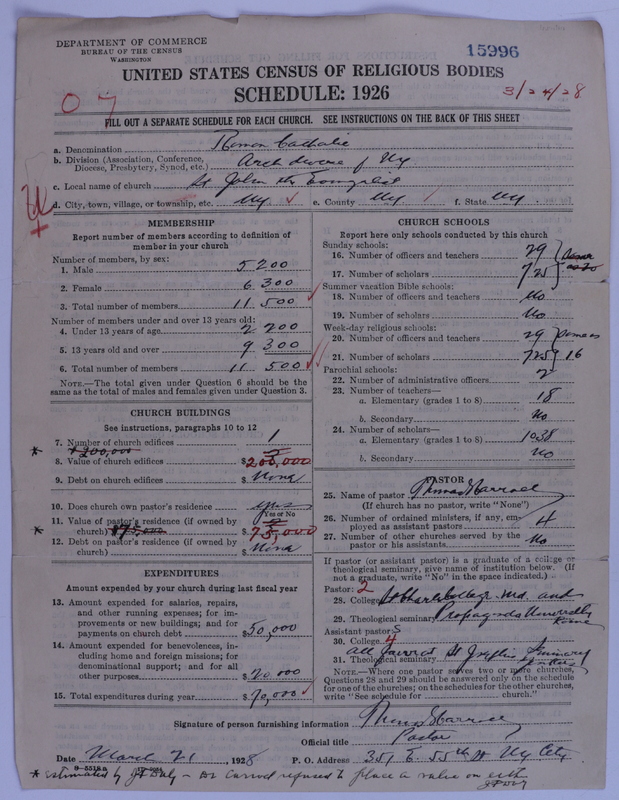 DEPARTMENT OF COMMERCE
BUREAU OF THE CENSUS
WASHINGTON
15996
UNITED STATES CENSUS OF RELIGIOUS BODIES
SCHEDULE: 1926
3/24/28
FILL OUT A SEPARATE SCHEDULE FOR EACH CHURCH. SEE INSTRUCTIONS ON THE BACK OF THIS SHEET
a. Denomination Roman Catholic
b. Division (Association, Conference, Diocese, Presbytery, Synod, etc.) Archdiocese of NY
c. Local name of church St. John the Evangelist
d. City, town, village, or township, etc. NY e. County NY f. State NY
MEMBERSHIP
Report number of members according to definition of member in your church
Number of members, by sex:
1. Male 5 200
2. Female 6 300
3. Total number of members 11 500
Number of members under and over 13 years old:
4. Under 13 years of age 2 200
5. 13 years old and over 9 300
6. Total number of members 11 500
NOTE.—The total given under Question 6 should be the same as the total of males and females given under Question 3.
CHURCH BUILDINGS
See instructions, paragraphs 10 to 12
7. Number of church edifices 1
* 200,000
8. Value of church edifices $200,000
9. Debt on church edifices $ None
10. Does church own pastor's residence yes
Yes or No
11. Value of pastor's residence (if owned by church) 75,000 $75,000
*
12. Debt on pastor's residence (if owned by church) $ None
EXPENDITURES
Amount expended by your church during last fiscal year
13. Amount expended for salaries, repairs, and other running expenses; for improvements or new buildings; and for payments on church debt $50,000
14. Amount expended for benevolences, including home and foreign missions; for denominational support; and for all other purposes $20,000
15. Total expenditures during year $70,000
CHURCH SCHOOLS
Report here only schools conducted by this church
Sunday schools:
16. Number of officers and teachers 29
17. Number of scholars 725
Summer vacation Bible schools:
18. Number of officers and teachers No
19. Number of scholars No
Week-day religious schools:
20. Number of officers and teachers 29 Same as
21. Number of scholars 725 16
Parochial schools:
22. Number of administrative officers 2
23. Number of teachers—
a. Elementary (grades 1 to 8) 18
b. Secondary No
24. Number of scholars—
a. Elementary (grades 1 to 8) 1038
b. Secondary No
PASTOR
25. Name of pastor Thomas Carroll
(If church has no pastor, write "None")
26. Number of ordained ministers, if any, employed as assistant pastors 4
27. Number of other churches served by the pastor or his assistants No
If pastor (or assistant pastor) is a graduate of a college or theological seminary, give name of institution below. (If not a graduate, write "No" in the space indicated.)
Pastor: 2
28. College College Md. and
29. Theological seminary Propaganda University Rome
Assistant pastors
30. College 4
31. Theological seminary St Josephs Seminary
NOTE.—Where one pastor serves two or more churches, Questions 28 and 29 should be answered only on the schedule for one of the churches; on the schedules for the other churches, write "See schedule for church."
Signature of person furnishing information Thomas Carroll
Official title Pastor
Date March 21, 1928 P. O. Address 351 E. 55th St NY City
* Estimated by J.F. Daly — Dr Carroll refused to place a value on either